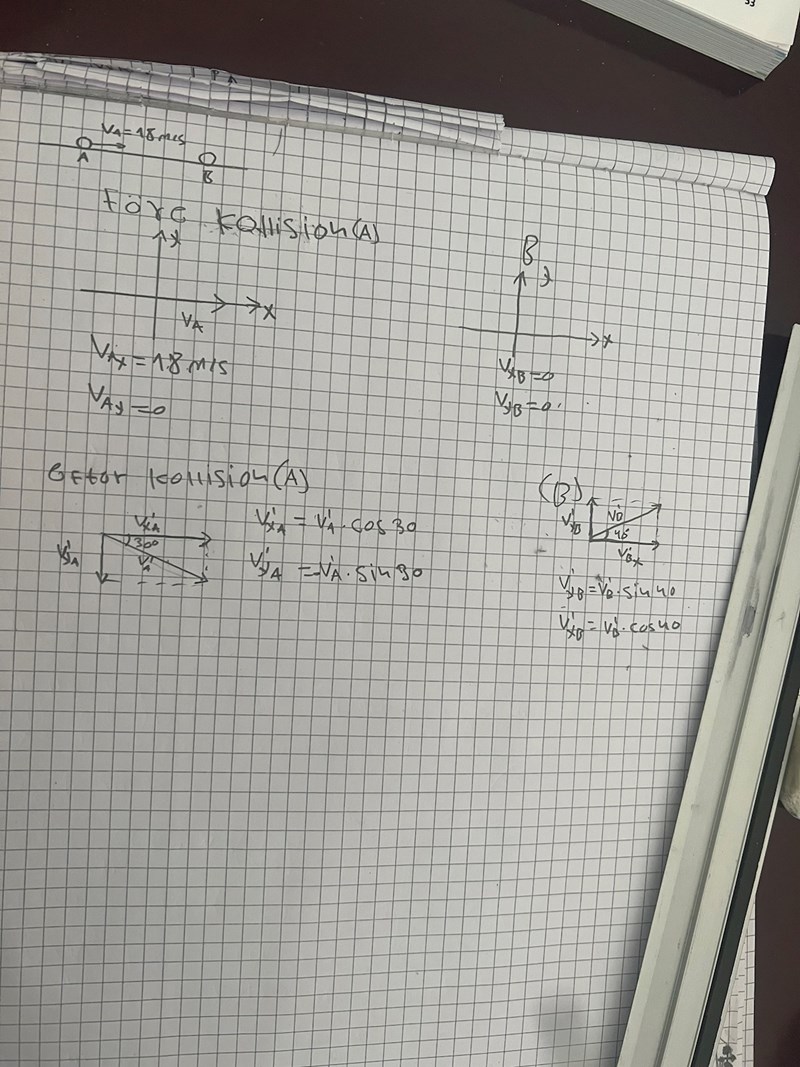 33
VA=18 m/s
A
B
Före Kollision(A)
y
x
VA
VAx=18 m/s
VAy=0
B
y
x
VxB=0
VyB=0.
Efter Kollision(A)
V'xA
30°
V'A
V'yA
V'xA = V'A · cos30
V'yA = -V'A · sin30
(B)
V'yB
V'B
40°
V'Bx
V'yB = V'B · sin40
V'xB = V'B · cos40